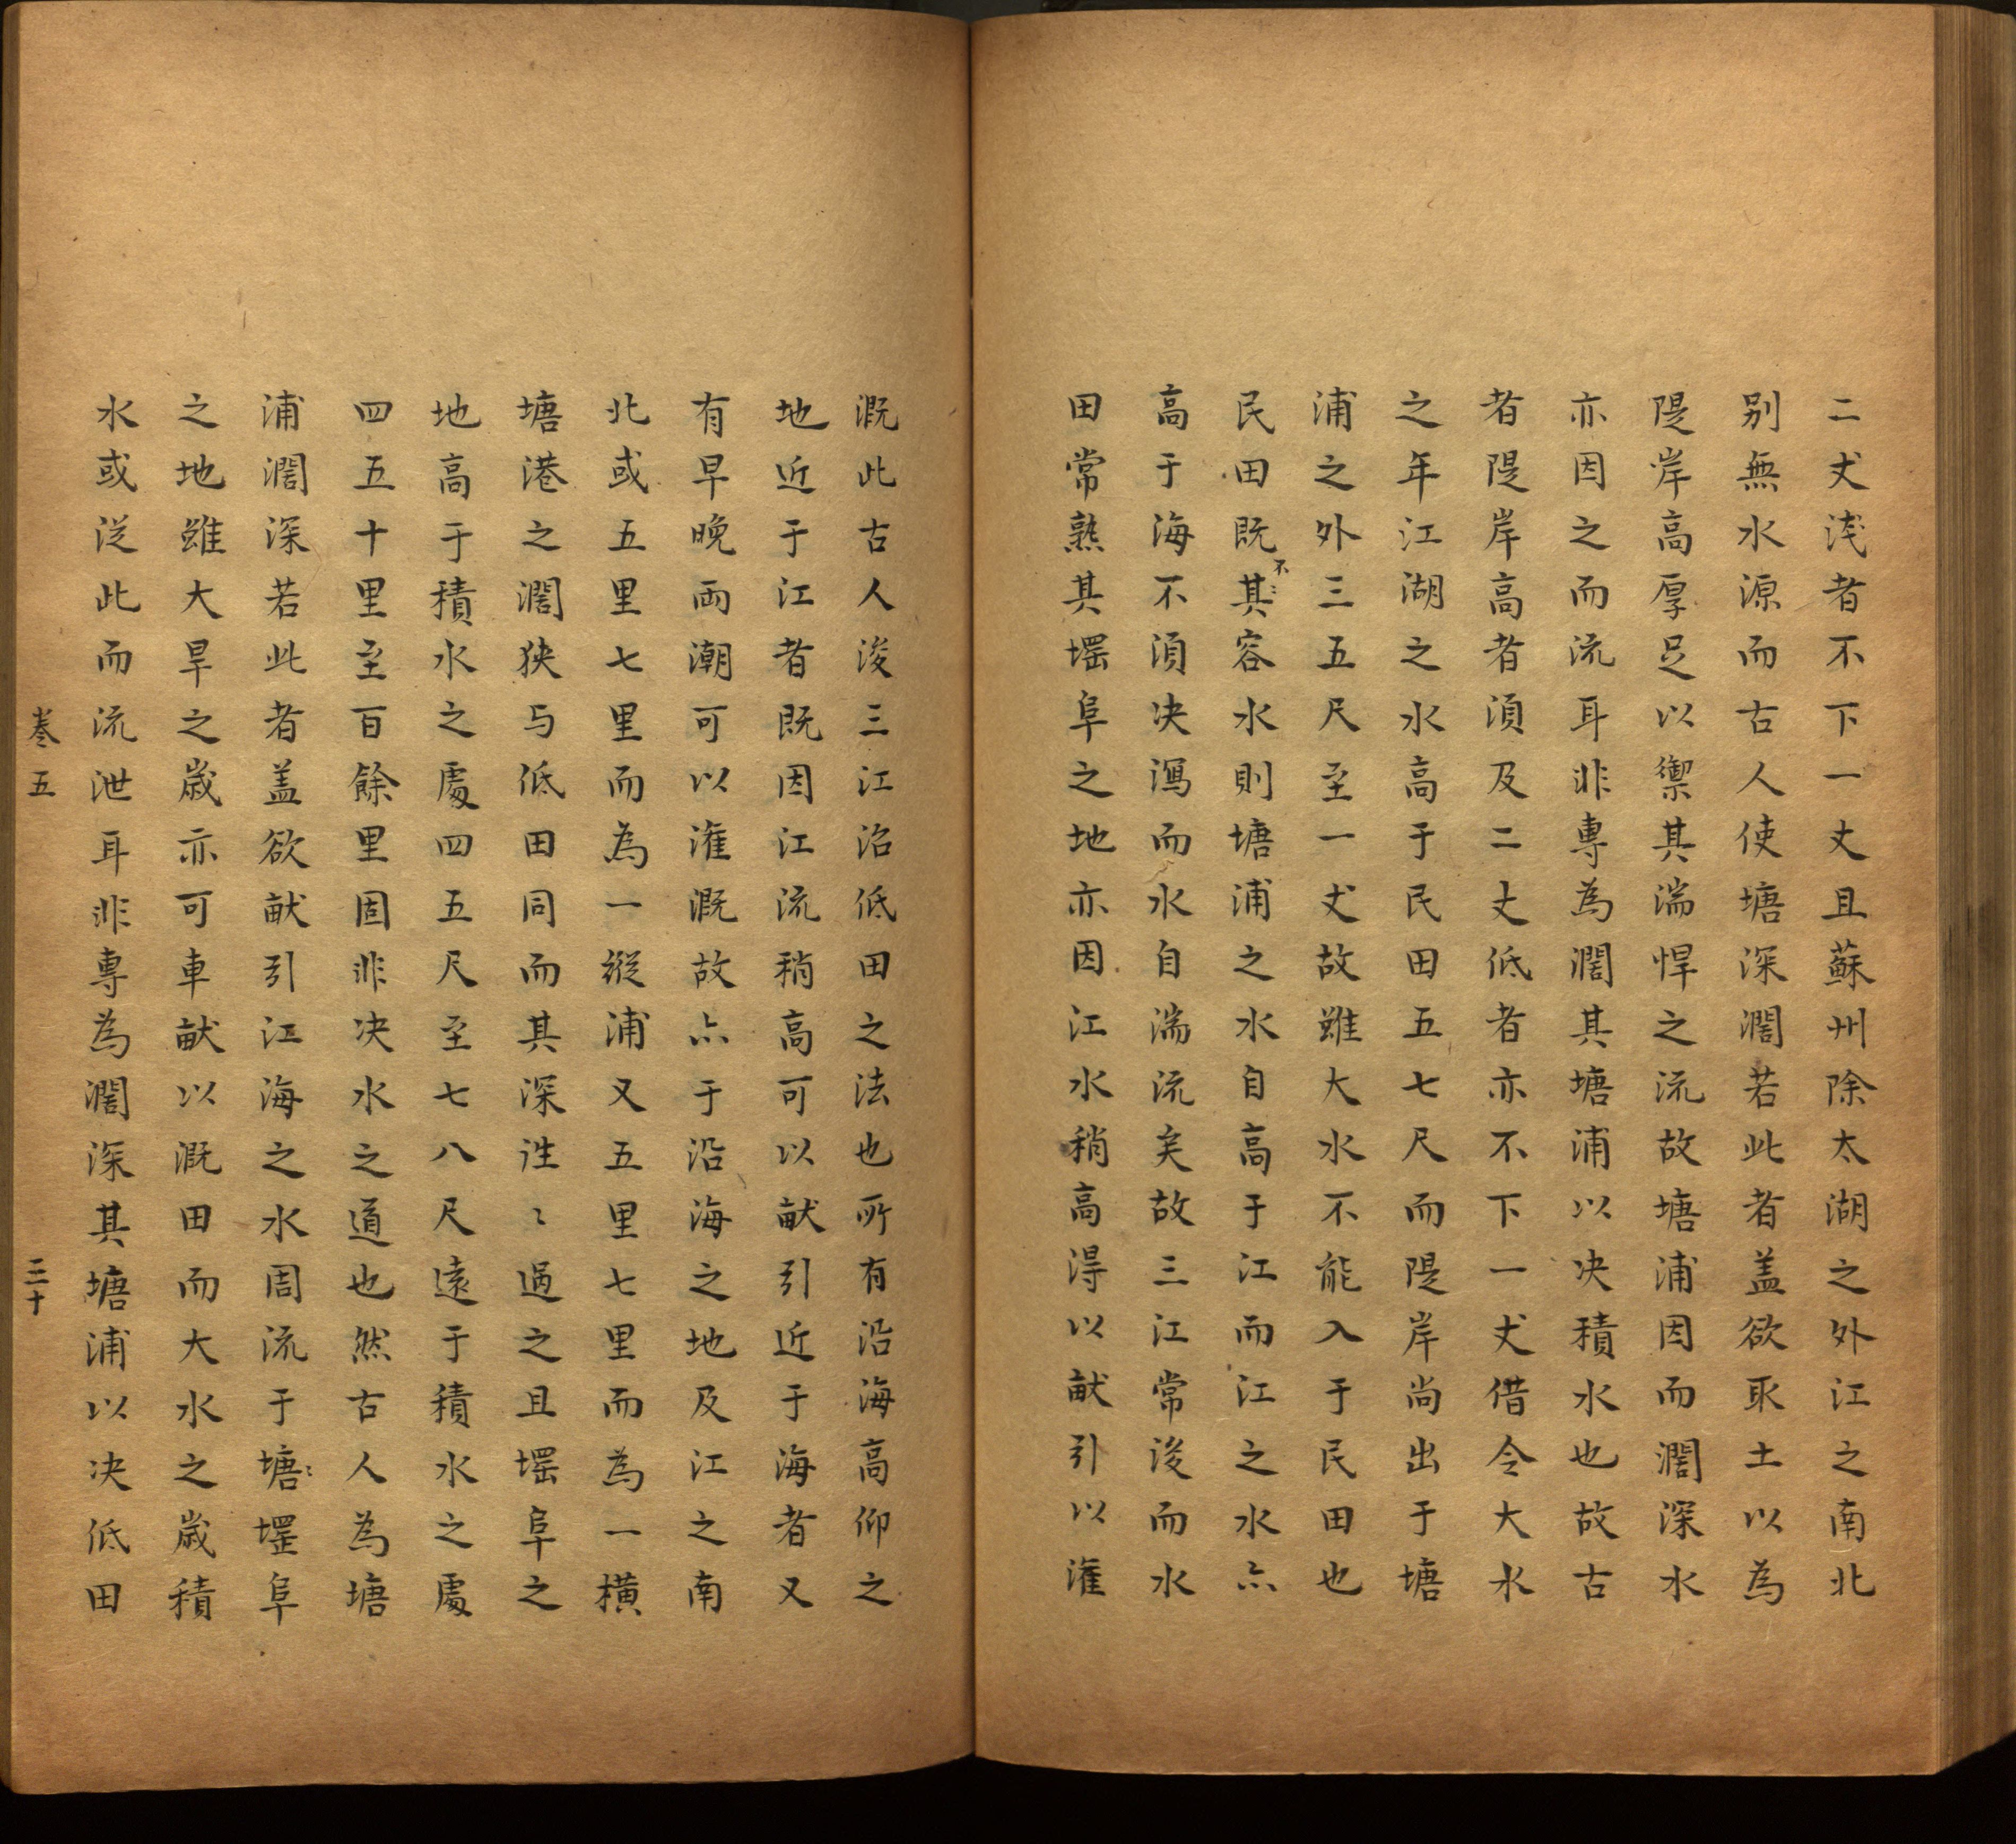 二丈浅者不下一丈且蘇州除太湖之外江之南北
别無水源而古人使塘深濶若此者盖欲取土以為
隄岸高厚足以禦其湍悍之流故塘浦因而濶深水
亦因之而流耳非專為濶其塘浦以决積水也故古
者隄岸高者湏及二丈低者亦不下一丈借令大水
之年江湖之水高于民田五七尺而隄岸尚出于塘
浦之外三五尺至一丈故雖大水不能入于民田也
民田既不其容水則塘浦之水自高于江而江之水亦
高于海不湏决瀉而水自湍流矣故三江常浚而水
田常熟其堽阜之地亦因江水稍高淂以畎引以灌
溉此古人浚三江治低田之法也所有沿海高仰之
地近于江者既因江流稍高可以畎引近于海者又
有早晚兩潮可以灌溉故亦于沿海之地及江之南
北或五里七里而為一縱浦又五里七里而為一横
塘港之濶狭与低田同而其深往〻過之且堽阜之
地高于積水之處四五尺至七八尺遠于積水之處
四五十里至百餘里固非决水之道也然古人為塘
浦濶深若此者盖欲畎引江海之水周流于塘堽阜
之地雖大旱之歳亦可車畎以溉田而大水之歳積
水或從此而流泄耳非專為濶深其塘浦以决低田
卷五 三十